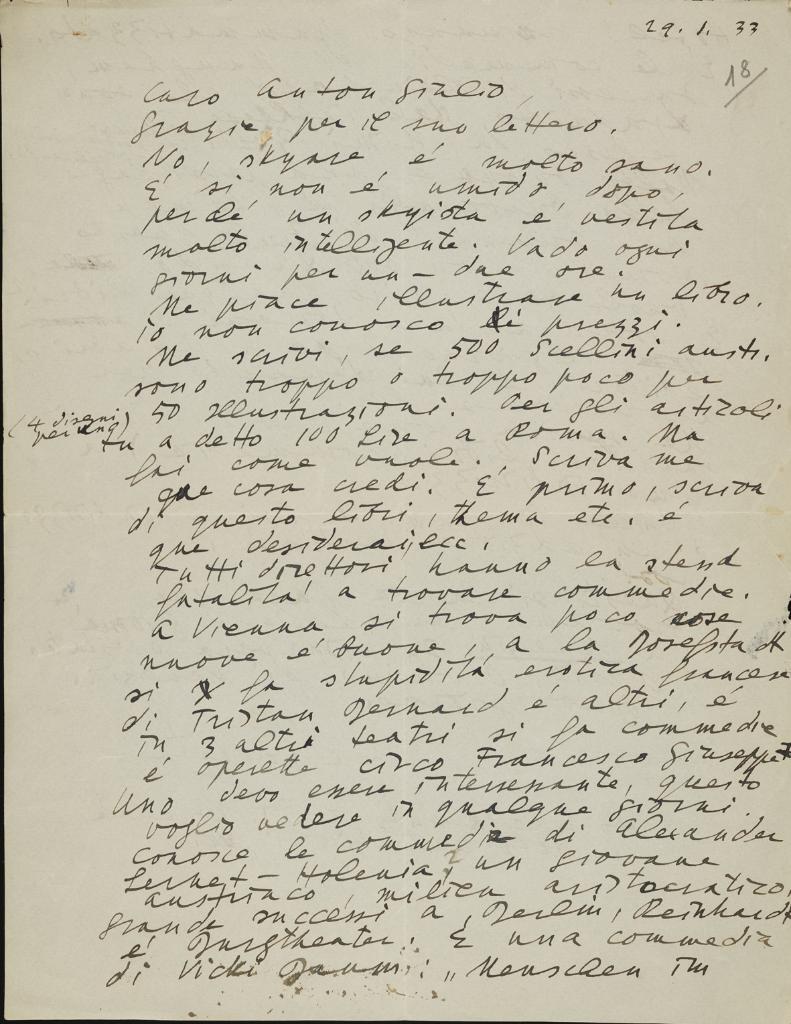 29. 1. 33
18/
Caro Anton Giulio,
Grazie per il suo lettero.
No, skyare é molto sano.
E si non é umido dopo,
perché un skyista é vestita
molto intelligente. Vado ogni
giorni per un – due ore.
Me piace illustrare un libro.
io non conosco li prezzi.
Me scrivi, se 500 Scellini austr.
sono troppo o troppo poco per
50 illustrazioni. Per gli articoli
(4 disegni
per uno)
tu a detto 100 Lire a Roma. Ma
fai come vuole. Scriva me
que cosa credi. E primo, scriva
di questo libri, thema etc. é
que desidera
Tutti direttori hanno la stessa
fatalitá a trovare commedie.
a Vienna si trova poco cose
nuove é buone, a la Josefstadt
si fa stupiditá erotica francese
di Tristan Bernard é altri, é
in 3 altri teatri si fa commedie
é operette circo Francesco Giuseppe I
Uno devo essere interessante, questo
voglio vedere in qualque giorni.
conosce le commedie di Alexander
Lernet-Holenia? un giovane
austriaco, milieu aristocratico,
grande successi a Berlin, Reinhardt
é Burgtheater. E una commedia
di Vicki Baum: „Menschen im